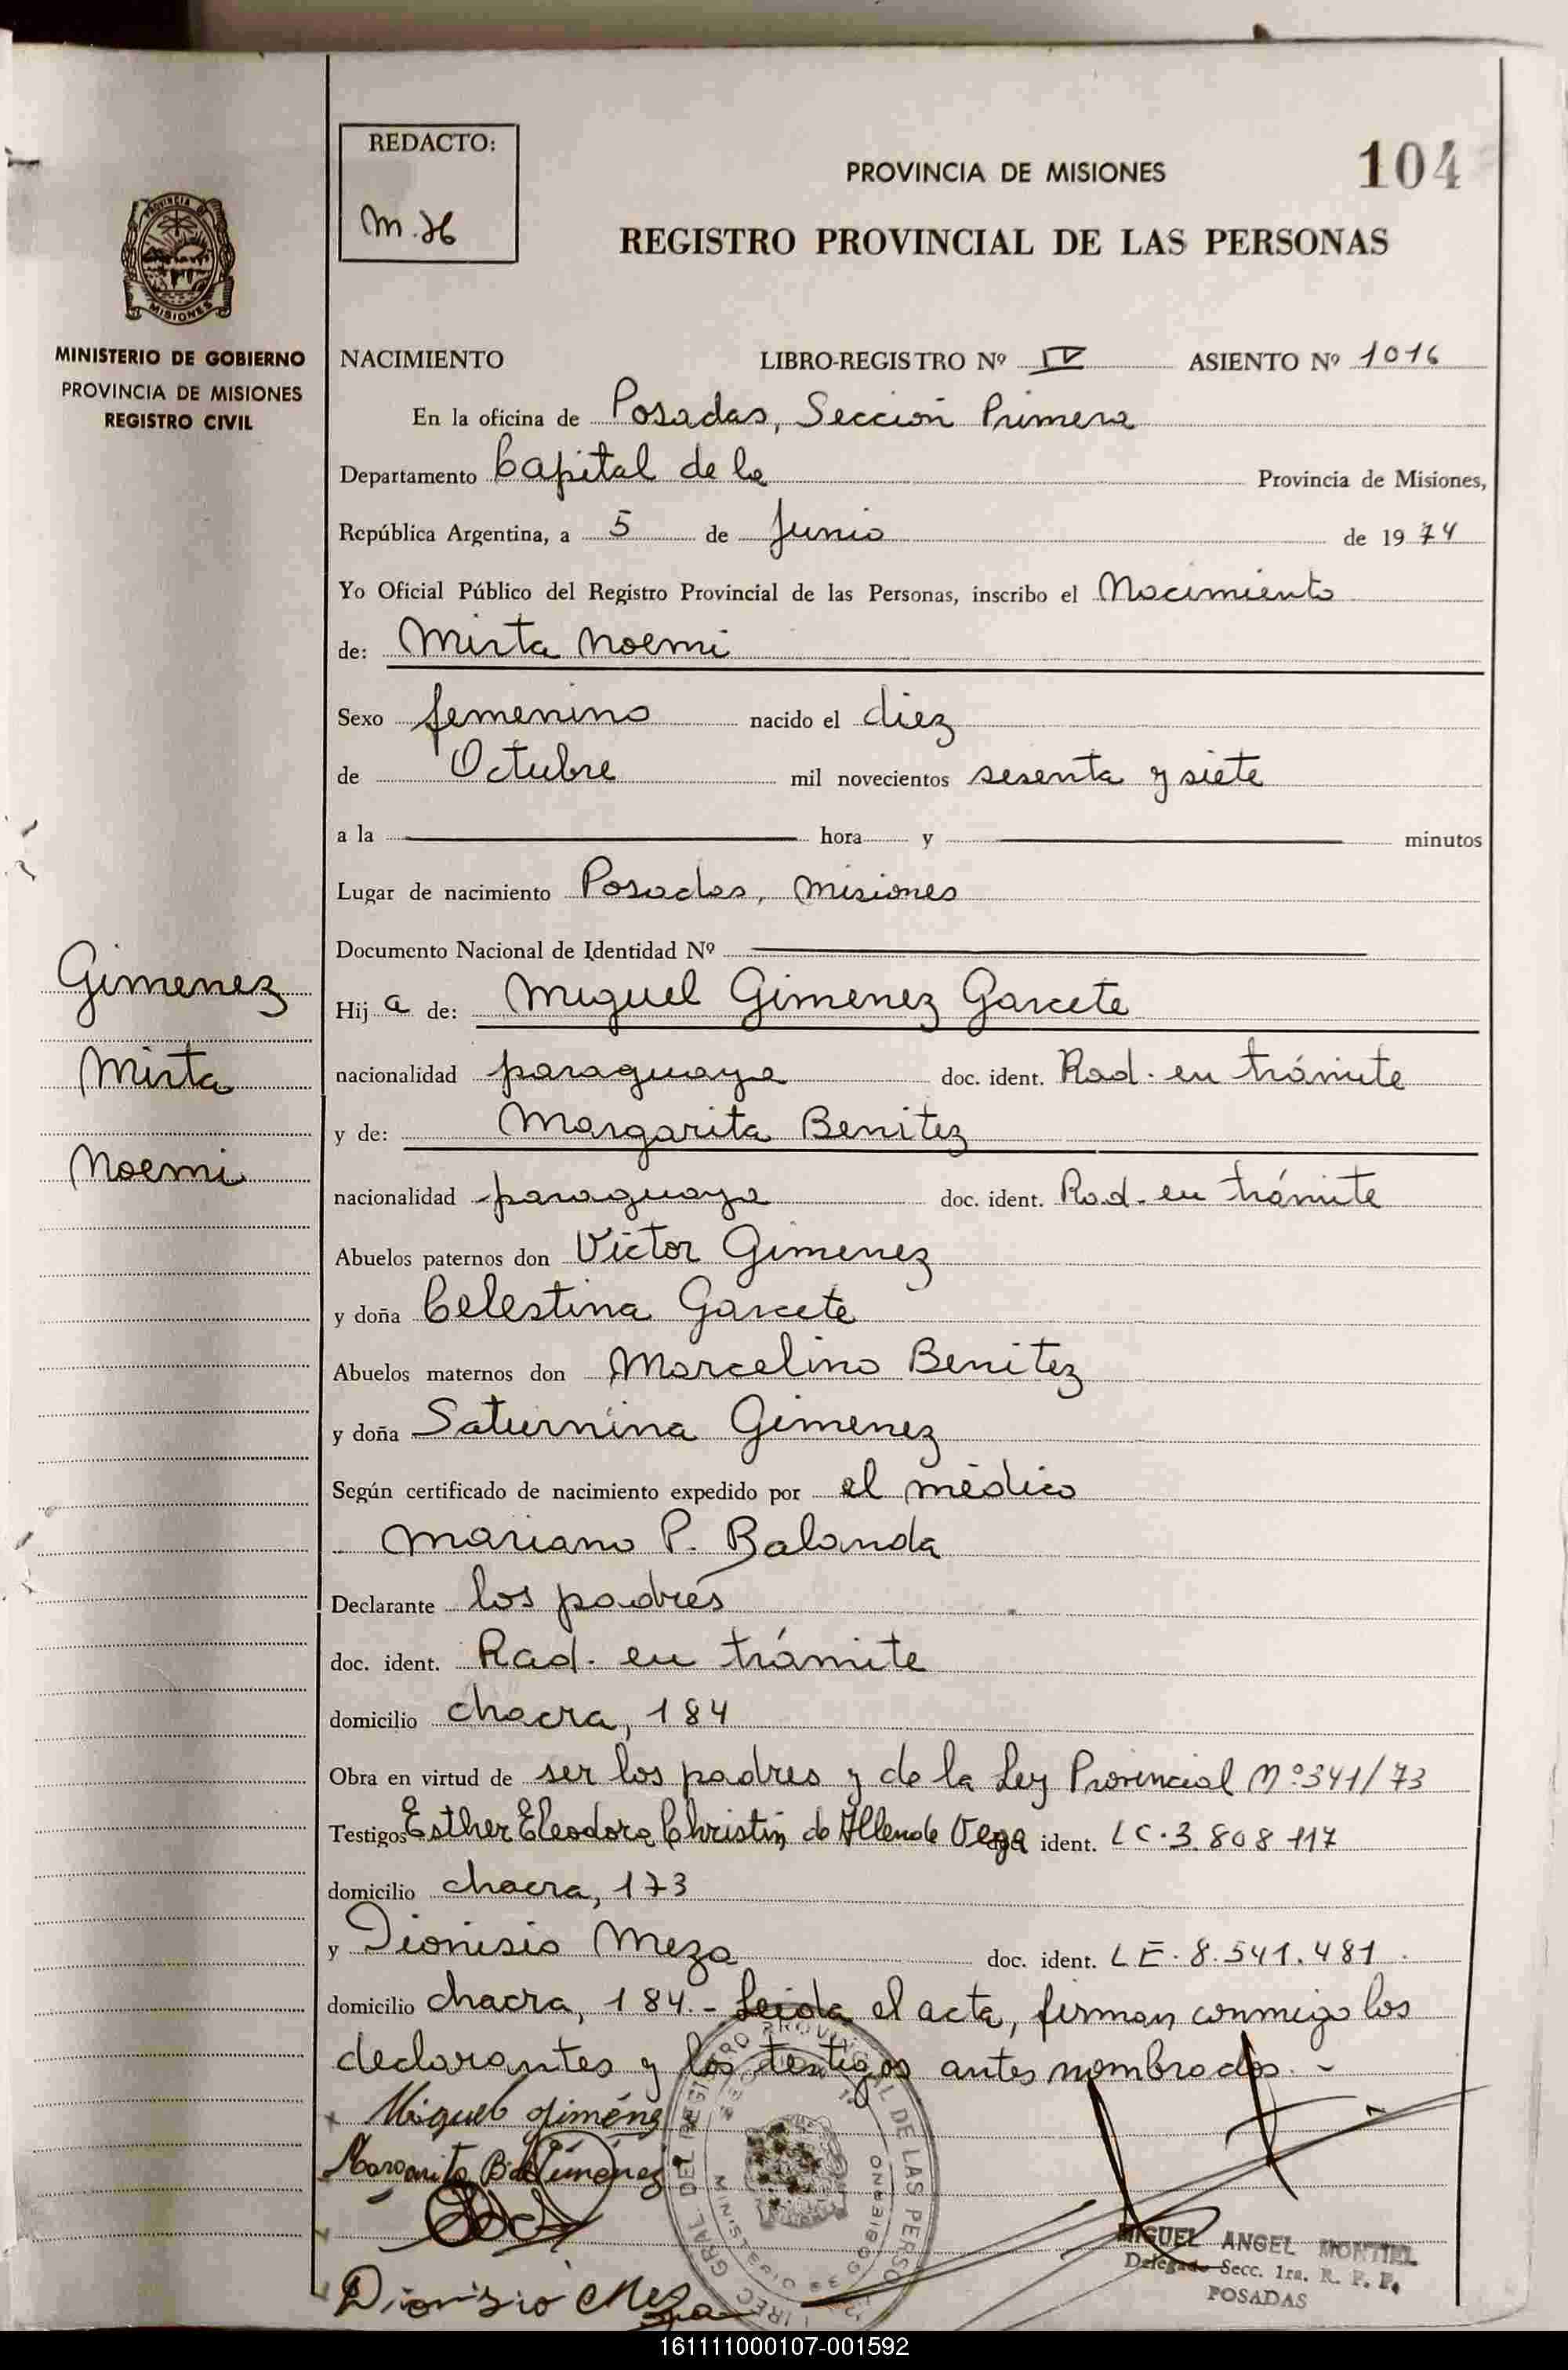 REDACTO:
M.H
PROVINCIA DE MISIONES
104
REGISTRO PROVINCIAL DE LAS PERSONAS
PROVINCIA DE
MISIONES
MINISTERIO DE GOBIERNO
PROVINCIA DE MISIONES
REGISTRO CIVIL
NACIMIENTO LIBRO-REGISTRO Nº IV ASIENTO Nº 1016
En la oficina de Posadas, Sección Primera
Departamento Capital de la Provincia de Misiones,
República Argentina, a 5 de Junio de 1974
Yo Oficial Público del Registro Provincial de las Personas, inscribo el Nacimiento
de: Mirta Noemi
Sexo femenino nacido el diez
de Octubre mil novecientos sesenta y siete
a la hora y minutos
Lugar de nacimiento Posadas, Misiones
Documento Nacional de Identidad Nº
Gimenez
Mirta
Noemi
Hij a de: Miguel Gimenez Garcete
nacionalidad paraguaya doc. ident. Rad. en trámite
y de: Margarita Benitez
nacionalidad paraguaya doc. ident. Rad. en trámite
Abuelos paternos don Victor Gimenez
y doña Celestina Garcete
Abuelos maternos don Marcelino Benitez
y doña Saturnina Gimenez
Según certificado de nacimiento expedido por el médico
Mariano P. Balanda
Declarante los padres
doc. ident. Rad. en trámite
domicilio chacra, 184
Obra en virtud de ser los padres y de la Ley Provincial Nº 341/73
Testigos Esther Eleodora Christin de Allende Vega ident. LC. 3.808.117
domicilio chacra, 173
y Dionisio Meza doc. ident. LE. 8.541.481.
domicilio chacra, 184.- Leida el acta, firman conmigo los
declarantes y los testigos antes nombrados.-
Miguel Jiménez
Margarita B de Jimenez
Dionisio Meza
MIGUEL ANGEL MONTIEL
Delegado Secc. 1ra. R. P. P.
POSADAS
161111000107-001592